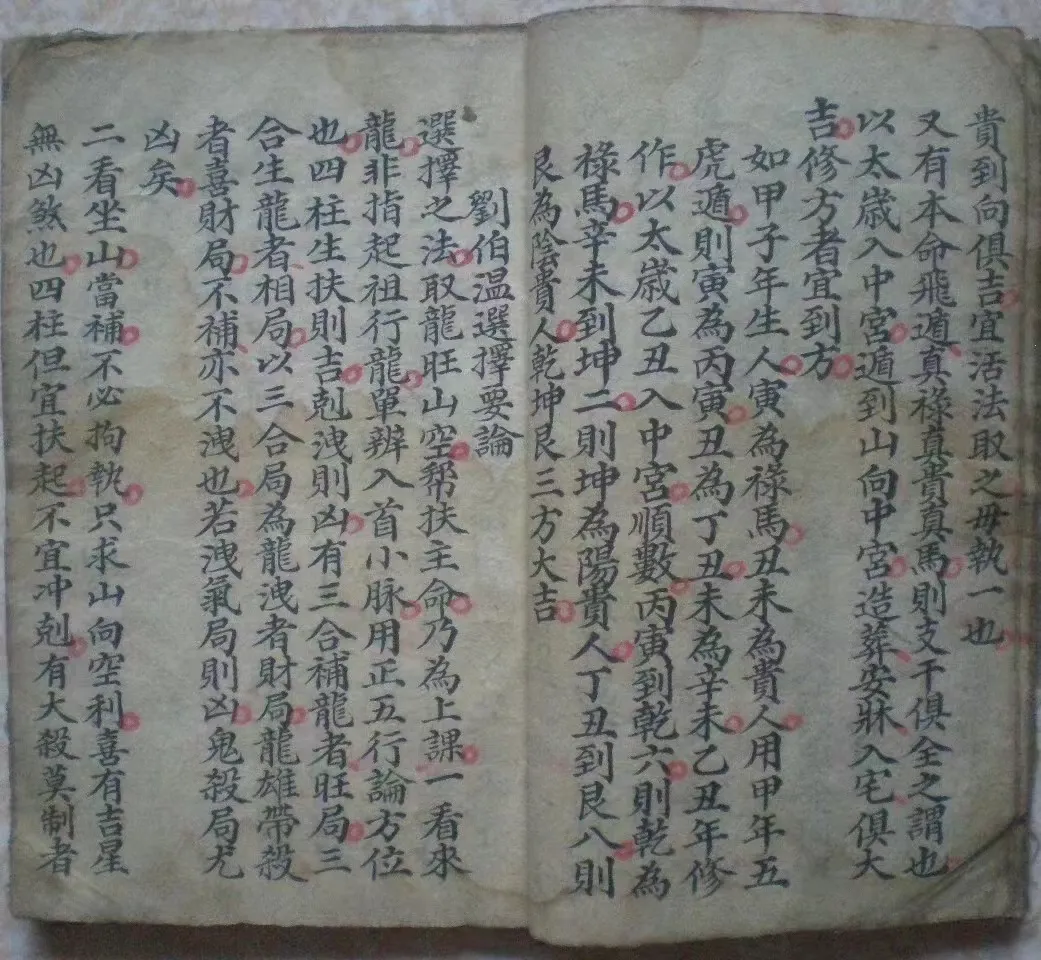 貴到向俱吉宜活法取之毋執一也
又有本命飛遁真祿真貴真馬則支干俱全之謂也
以太歲入中宮遁到山向中宮造葬安牀入宅俱大
吉修方者宜到方
如甲子年生人寅為祿馬丑未為貴人用甲年五
虎遁則寅為丙寅丑為丁丑未為辛未乙丑年修
作以太歲乙丑入中宮順數丙寅到乾六則乾為
祿馬辛未到坤二則坤為陽貴人丁丑到艮八則
艮為陰貴人乾坤艮三方大吉
劉伯溫選擇要論
選擇之法取龍旺山空幫扶主命乃為上課一看來
龍非指起祖行龍單辨入首小脉用正五行論方位
也四柱生扶則吉剋洩則凶有三合補龍者旺局三
合生龍者相局以三合局為龍洩者財局龍雄帶殺
者喜財局不補亦不洩也若洩氣局則凶鬼殺局尤
凶矣
二看坐山當補不必拘執只求山向空利喜有吉星
無凶煞也四柱但宜扶起不宜冲剋有大殺莫制者